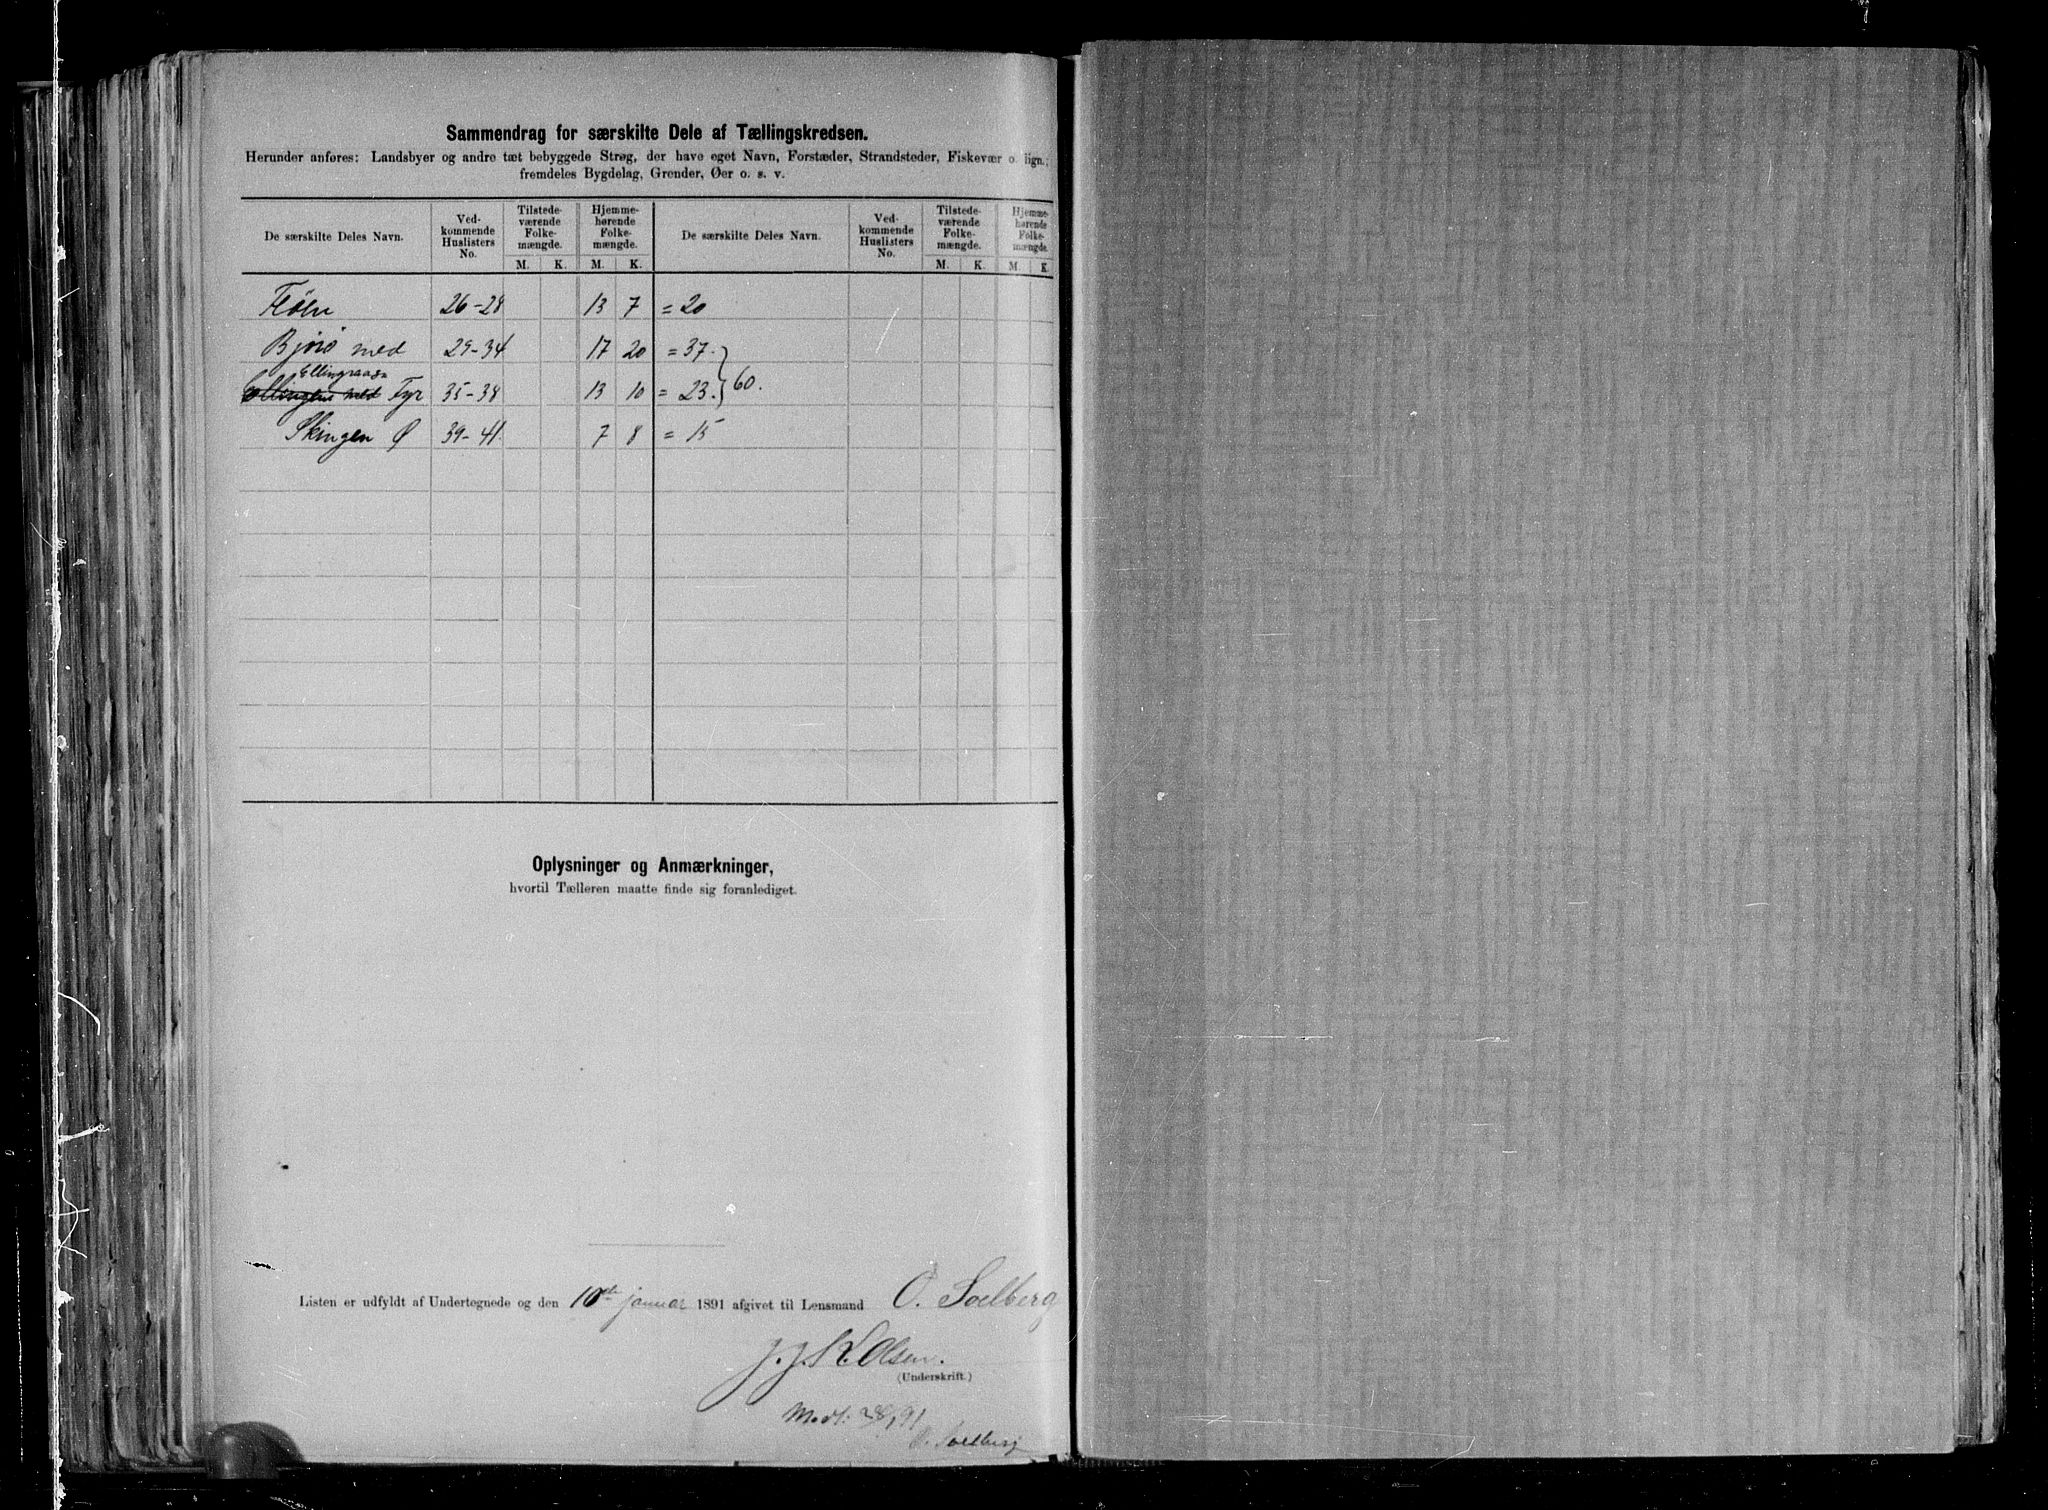 Sammendrag for særskilte Dele af Tællingskredsen.
Herunder anføres: Landsbyer og andre tæt bebyggede Strøg, der have eget Navn, Forstæder, Strandsteder, Fiskevær o. lign.;
fremdeles Bygdelag, Grender, Øer o. s. v.
De særskilte Deles Navn. Ved-kommende Huslisters No. Tilstede-værende Folke-mængde. Hjemme-hørende Folke-mængde. De særskilte Deles Navn. Ved-kommende Huslisters No. Tilstede-værende Folke-mængde. Hjemme-hørende Folke-mængde.
M. K. M. K. M. K. M. K.
26-28 13 7 = 20
Bjørø med 29-34 17 20 = 37. } 60.
Ellingraasa
Fyr 35-38 13 10 = 23.
Skingen Ø 39-41. 7 8 = 15
Oplysninger og Anmærkninger,
hvortil Tælleren maatte finde sig foranlediget.
Listen er udfyldt af Undertegnede og den 10de januar 1891 afgivet til Lensmand O. Soelberg
J. J. K. Olsen.
(Underskrift.)
O. Soelberg